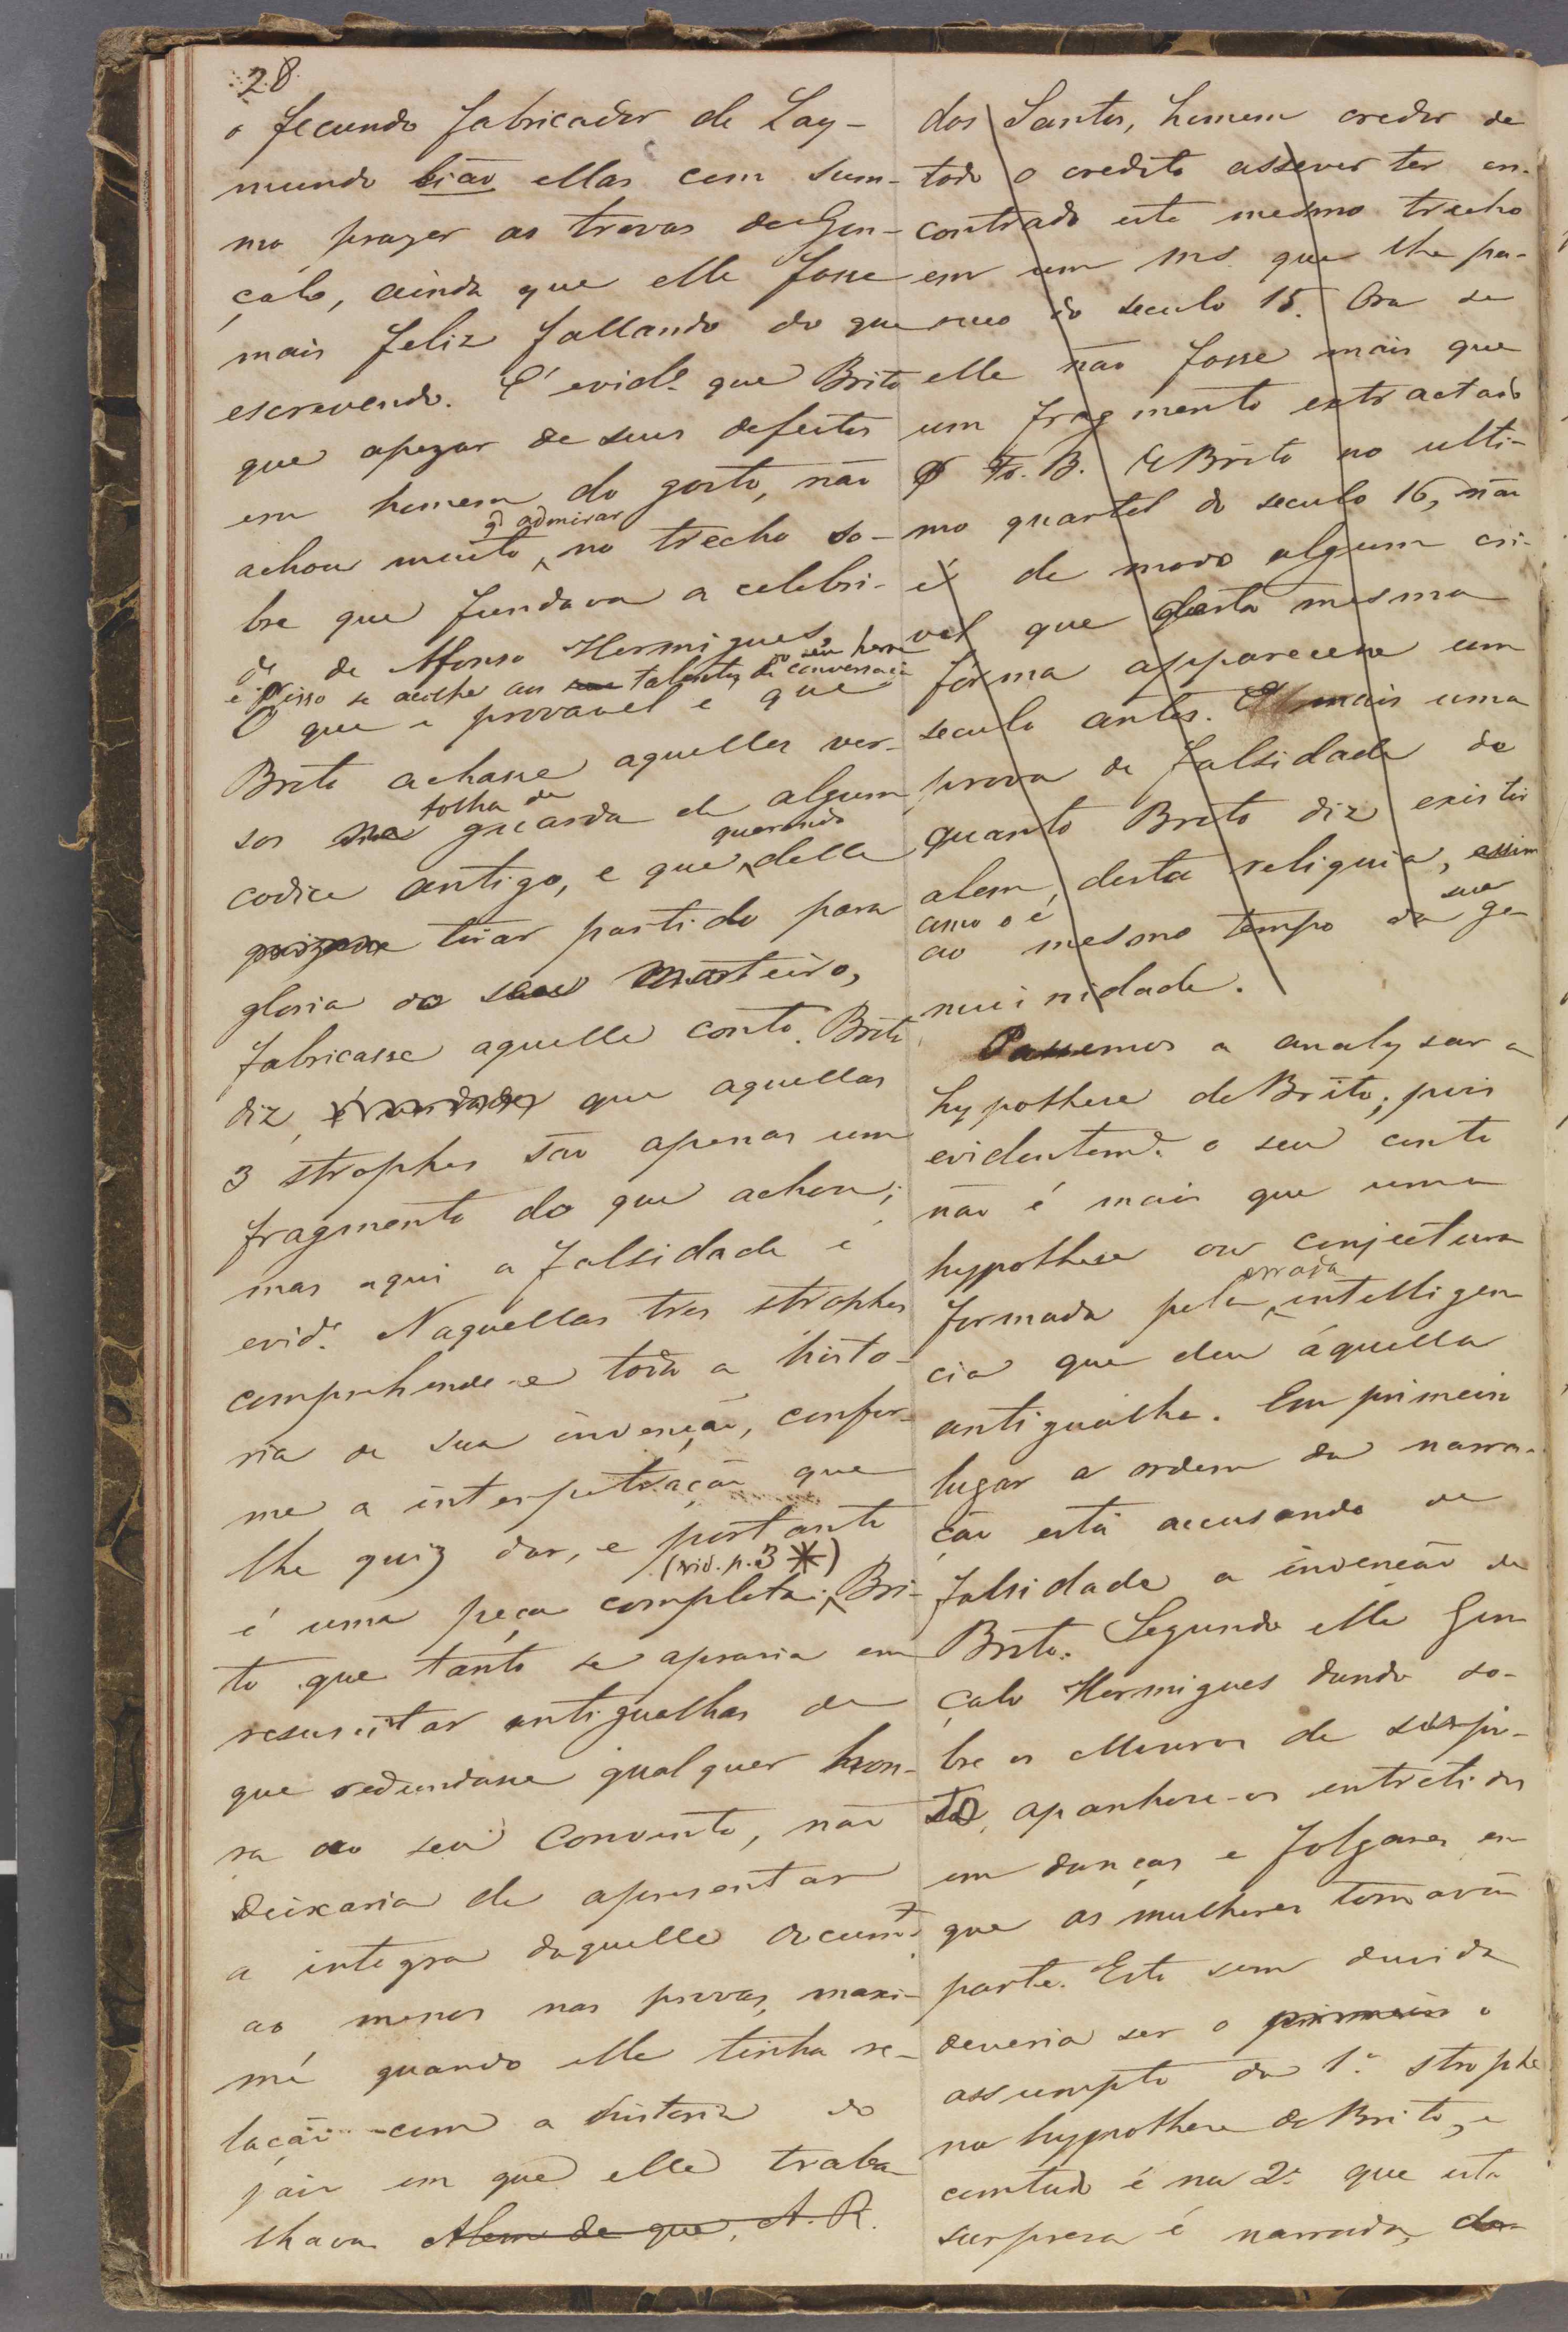 28
o fecundo fabricador de Lay-
mundo lião ellas com sum-
mo prazer as trovas de Gon-
çalo, ainda que elle fosse
mais feliz fallando do que
escrevendo. E' evide que Brito
que apezar de seus defeitos
era homem do gosto, não
achou muito qe admirar no trecho so-
bre que fundava a celebri-
de de Affonso Hermigues,
e disso se acolhe aos talentos de conversação do seu heroe
O que é provavel é que
Brito achasse aquelles ver-
sos na folha de guarda de algum
codice antigo, e que querendo delle
tirar partido para
gloria do seu Mosteiro,
fabricasse aquelle conto. Brito
diz, é verdade, que aquellas
3 strophes são apenas um
fragmento do que achou;
mas aqui a falsidade é
evide. Naquellas tres strophes
comprehende-se toda a histo-
ria de sua invenção, confor-
me a interpetração que
lhe quiz dar, e portanto
(vid. p. 3 *)
é uma peça completa; Bri-
to que tanto se aprasia em
resuscitar antigualhas de
que redundasse qualquer hon-
ra ao seu Convento, não
deixaria de apresentar
a integra daquelle documto
ao menos nas provas, maxi-
mé quando elle tinha re-
lação com a historia do
pair em que elle traba-
lhava. Alem de que, A. R.
dos Santos, homem credor de
todo o credito assever ter en-
contrado este mesmo trecho
em um ms. que lhe pa-
receo do seculo 15. Ora se
elle não fosse mais que
um fragmento extractado
Fr. B. de Brito no ulti-
mo quartel do seculo 16, não
é de modo algum cri-
vel que desta mesma
forma apparecesse um
seculo antes. E' mais uma
prova de falsidade de
quanto Brito diz existir
alem desta reliquia, assim
como o é
ao mesmo tempo da sua ge-
nuinidade.
Passemos a analysar a
hypothese de Brito; pois
evidenteme o seu conto
não é mais que uma
hypothese ou conjectura
formada pela errada intelligen
cia que deu áquella
antigualha. Em primeiro
lugar a ordem da narra-
ção está accusando de
falsidade a invenção de
Brito. Segundo elle Gon
çalo Hermigues dando so-
bre os Mouros de surpre-
sa, apanhou-os entretidos
em danças e folgares em
que as mulheres tomavão
parte. Este sem duvida
deveria ser o primeiro o
assumpto da 1a strophe
na hypothese de Brito, e
comtudo é na 2a que esta
surpresa é narrada, do-